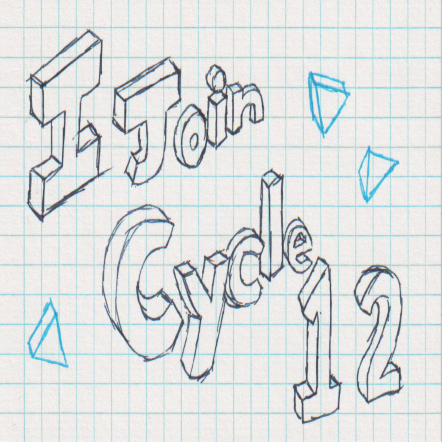 I Join
Cycle
12